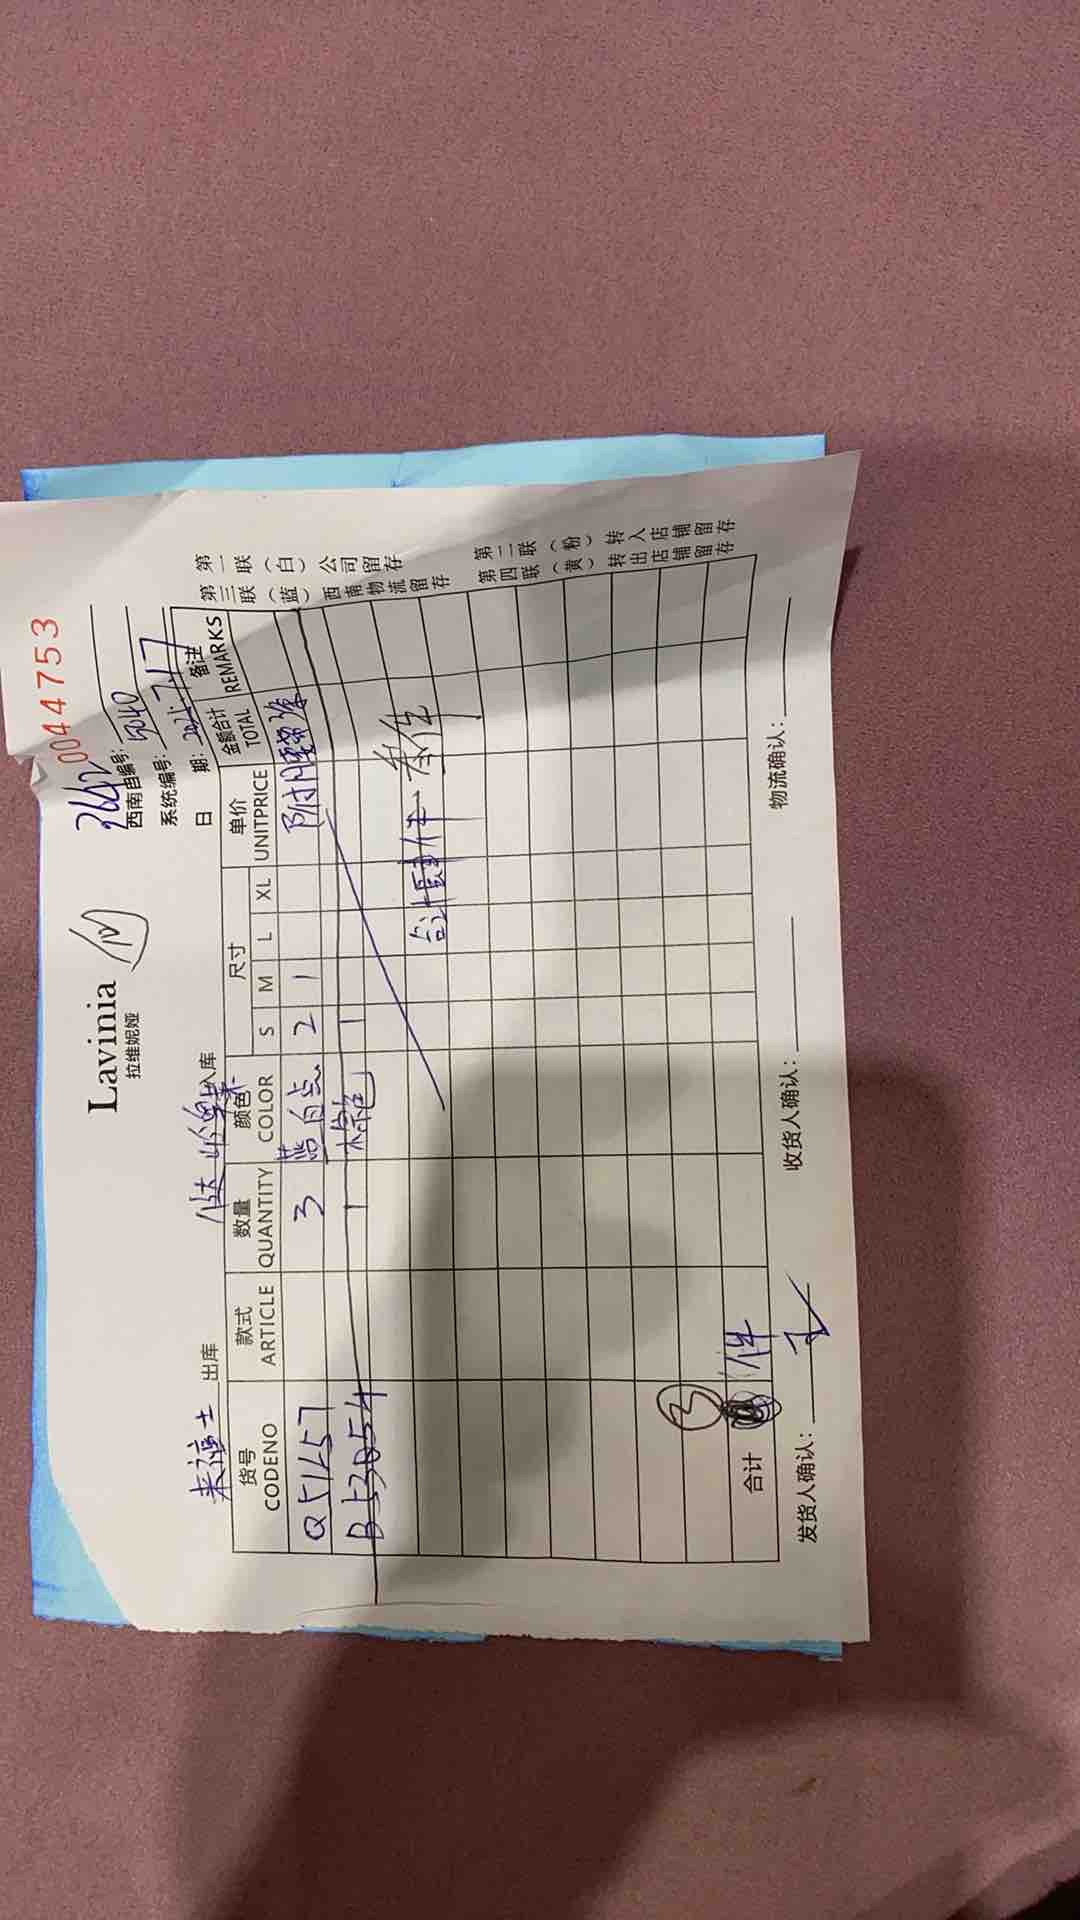 0044753
Lavinia
拉维妮娅
2642
西南自编号:
系统编号: 5040
日 期:
来福士 出库 入库
货号 款式 数量 颜色 尺寸 单价 金额合计 备注
CODENO ARTICLE QUANTITY COLOR S M L XL UNITPRICE TOTAL REMARKS
Q51657 3 蓝白点 2 1 附腰带
B53054 1 棕色 1
合计 叁件
3
合计 件
发货人确认: 收货人确认: 物流确认:
第一联(白)公司留存 第二联(粉)转入店铺留存
第三联(蓝)西南物流留存 第四联(黄)转出店铺留存